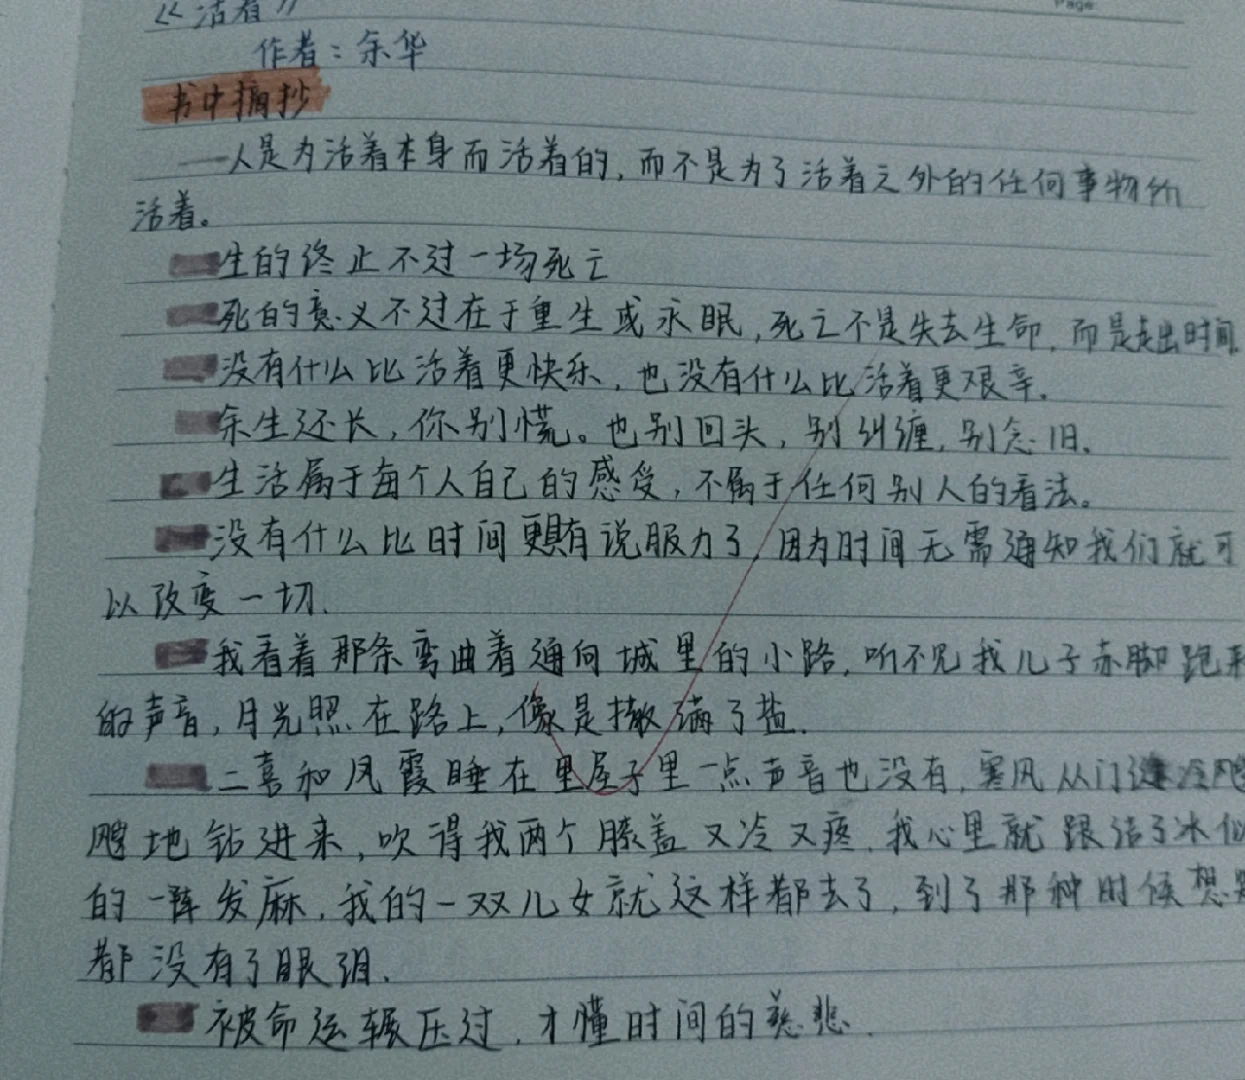 《活着》
Page
作者：余华
书中摘抄
一人是为活着本身而活着的，而不是为了活着之外的任何事物所
活着。
生的终止不过一场死亡
死的意义不过在于重生或永眠，死亡不是失去生命，而是走出时间
没有什么比活着更快乐，也没有什么比活着更艰辛。
余生还长，你别慌。也别回头，别纠缠，别念旧。
生活属于每个人自己的感受，不属于任何别人的看法。
没有什么比时间更具有说服力了，因为时间无需通知我们就可
以改变一切.
我看着那条弯曲着通向城里的小路，听不见我儿子赤脚跑来
的声音，月光照在路上，像是撒满了盐.
二喜和凤霞睡在里屋子里一点声音也没有，寒风从门缝冷飕
飕地钻进来，吹得我两个膝盖又冷又疼，我心里就跟结了冰似
的一阵发麻，我的一双儿女就这样都去了，到了那种时候想哭
都没有了眼泪.
被命运辗压过，才懂时间的慈悲.